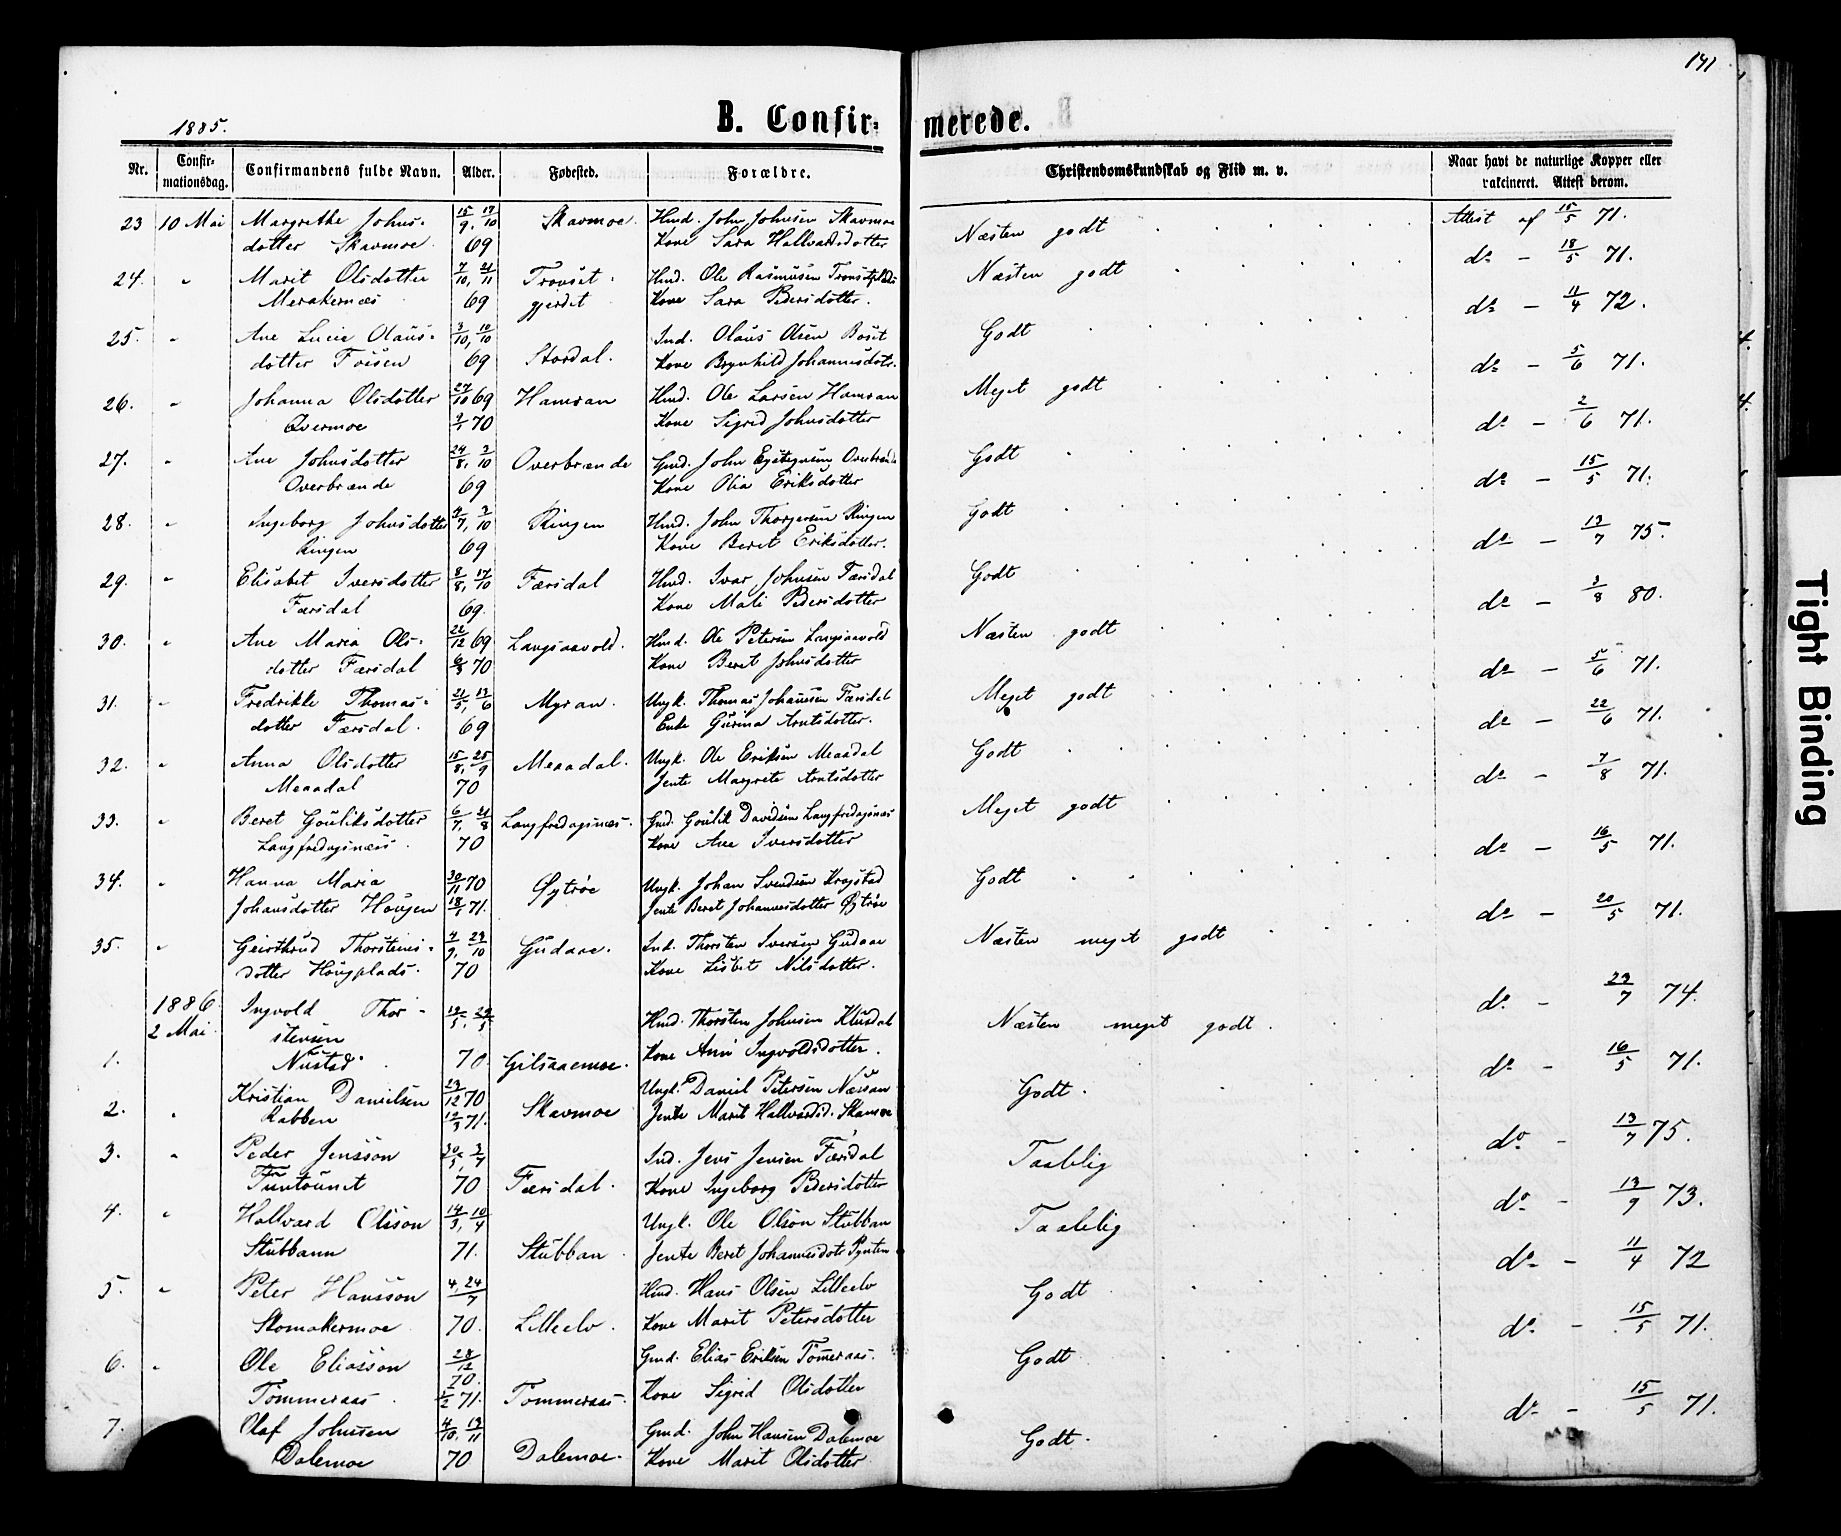 141
1885.
B. Confir-
merede.
Nr.
Confir-
mationsdag.
Confirmandens fulde Navn.
Alder.
Fødested.
Forældre.
Christendomskundskab og Flid m. v.
Naar havt de naturlige Kopper eller
vakcineret. Attest derom.
23 10 Mai Margrethe Johns- 15/9, 17/10 Skavmoe. Hmd. John Johnsen Skavmoe Næsten godt Attest af 15/5 71.
dotter Skavmoe. 69 Kone Sara Hallvardsdotter
24. " Marit Olsdotter 7/10, 21/11 Tronset- Hmd. Ole Rasmusen Næsten godt do - 18/5 71.
Merakernæs 69 gjerdet Kone Sara Pedersdotter.
25. " Ane Lucie Olaus- 3/10, 10/10 Stordal. Ind. Olaus Olsen Boset Godt do - 11/4 72.
dotter Fossen 69 Kone Brynhild Johannesdotr.
26. " Johanna Olsdotter 27/10 69 Hamran Hmd. Ole Larsen Hamran Meget godt do - 5/6 71.
Overmoe 2/1 70 Kone Sigrid Johnsdotter
27. " Ane Johnsdotter 24/8, 3/10 Overbrænde Gmd. John Overbrænde Godt do - 2/6 71.
Overbrænde 69 Kone Olia Eriksdotter
28. " Ingeborg Johnsdotter 4/7, 3/10 Ringen Hmd. John Thorgersen Ringen Godt do - 15/5 71.
Ringen 69 Kone Beret Eriksdotter.
29. " Elisabet Iversdotter 8/8, 17/10 Færsdal Hmd. Ivar Johnsen Færsdal Godt do - 13/7 75.
Færsdal 69. Kone Mali Pedersdotter
30. " Ane Maria Ols- 22/12 69 Langsaavold. Hmd. Ole Petersen Langsaavold Næsten godt do - 3/8 80.
dotter Færsdal 6/3 70 Kone Beret Johnsdotter
31. " Fredrikke Thomas- 21/5, 13/6 Myran. Ungk. Thomas Johansen Færsdal Meget godt do - 5/6 71.
dotter Færsdal. 69 Enke Gurina Arntsdotter.
32. " Anna Olsdotter 15/8, 25/9 Meaadal. Ungk. Ole Eriksen Meaadal Godt do - 22/6 71.
Meaadal 70 Jente Margrete Arntsdotter
33. " Beret Gouliksdotter 6/7, 21/8 Langfredagsnæs. Gmd. Goulik Davidsen Langfredagsnæs Meget godt do - 7/8 71.
Langfredagsnæs. 70 Kone Ane Iversdotter
34. " Hanna Maria 30/11 70 Øytrøe Ungk. Johan Svendsen Krogstad Godt do - 16/5 71.
Johansdotter Hougen 18/1 71. Jente Beret Johannesdotter Øytrøe
35. " Geirthrud Thorsteins- 4/9, 23/10 Gudaae. Ind. Thorsten Iversen Gudaae Næsten meget godt do - 20/5 71.
dotter Hougplads. 70 Kone Lisbet Nilsdotter.
1886
2 Mai
1. Ingvold Thor- Hmd. Thorsten Johnsen Klusdal Næsten meget godt. do - 23/7 74.
stensen
Nustad. 70. Gilsaaemoe. Kone Ane Ingvoldsdotter.
2. " Kristian Danielsen 13/12 70 Skavmoe Ungk. Daniel Petersen Næssan Godt. do - 16/5 71.
Rabben 12/3 71. Jente Marit Hallvardsd. Skavmoe
3. " Peder Jensson 30/5, 3/7 Færsdal. Ind. Jens Jensen Færsdal Taalelig do - 13/7 75.
Tuntounet 70 Kone Ingeborg Pedersdotter
4. " Hallvard Olsson 14/3, 10/4 Stubban Ungk. Ole Olson Stubban Taalelig do - 13/9 73.
Stubbann 71. Jente Beret Johannesdotr
5. " Peter Hansson 4, 24/7 Lilleelv. Hmd. Hans Olsen Lilleelv Godt do - 11/4 72
Skomakermoe 70. Kone Marit Petersdotter
6. " Ole Eliasson 28/12 70. Tommeraas. Gmd. Elias Eriksen Tømeraas. Godt do - 15/5 71.
Tommeraas. 1/2 71. Kone Sigrid Olsdotter
7. Olaf Johnsen 4/10, 13/11 Dalemoe. Gmd. John Hansen Dalemoe Godt. do - 15/5 71.
Dalemoe 70 Kone Marit Olsdotter
Tight Binding